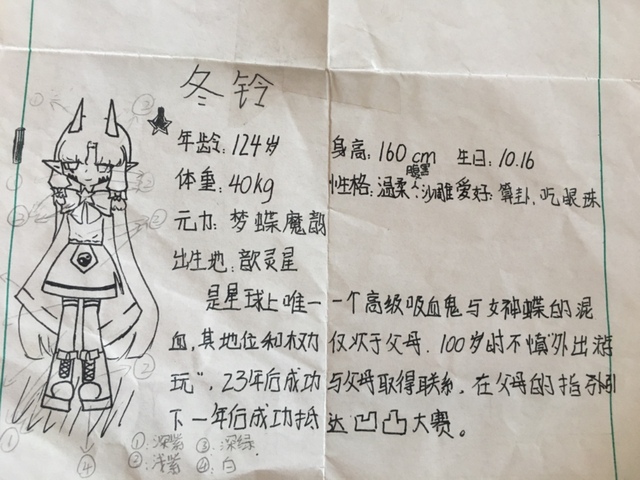 冬铃
年龄：124岁 身高：160cm 生日：10.16
体重：40kg 性格：温柔、腹黑、沙雕 爱好：算卦、吃眼珠
元力：梦蝶魔韵
出生地：歆灵星
是星球上唯一一个高级吸血鬼与女神蝶的混
血，其地位和权力仅次于父母．100岁时不慎“外出游
玩”，23年后成功与父母取得联系，在父母的指引
下一年后成功抵达凹凸大赛。
①：深紫 ③：深绿
②：浅紫 ④：白